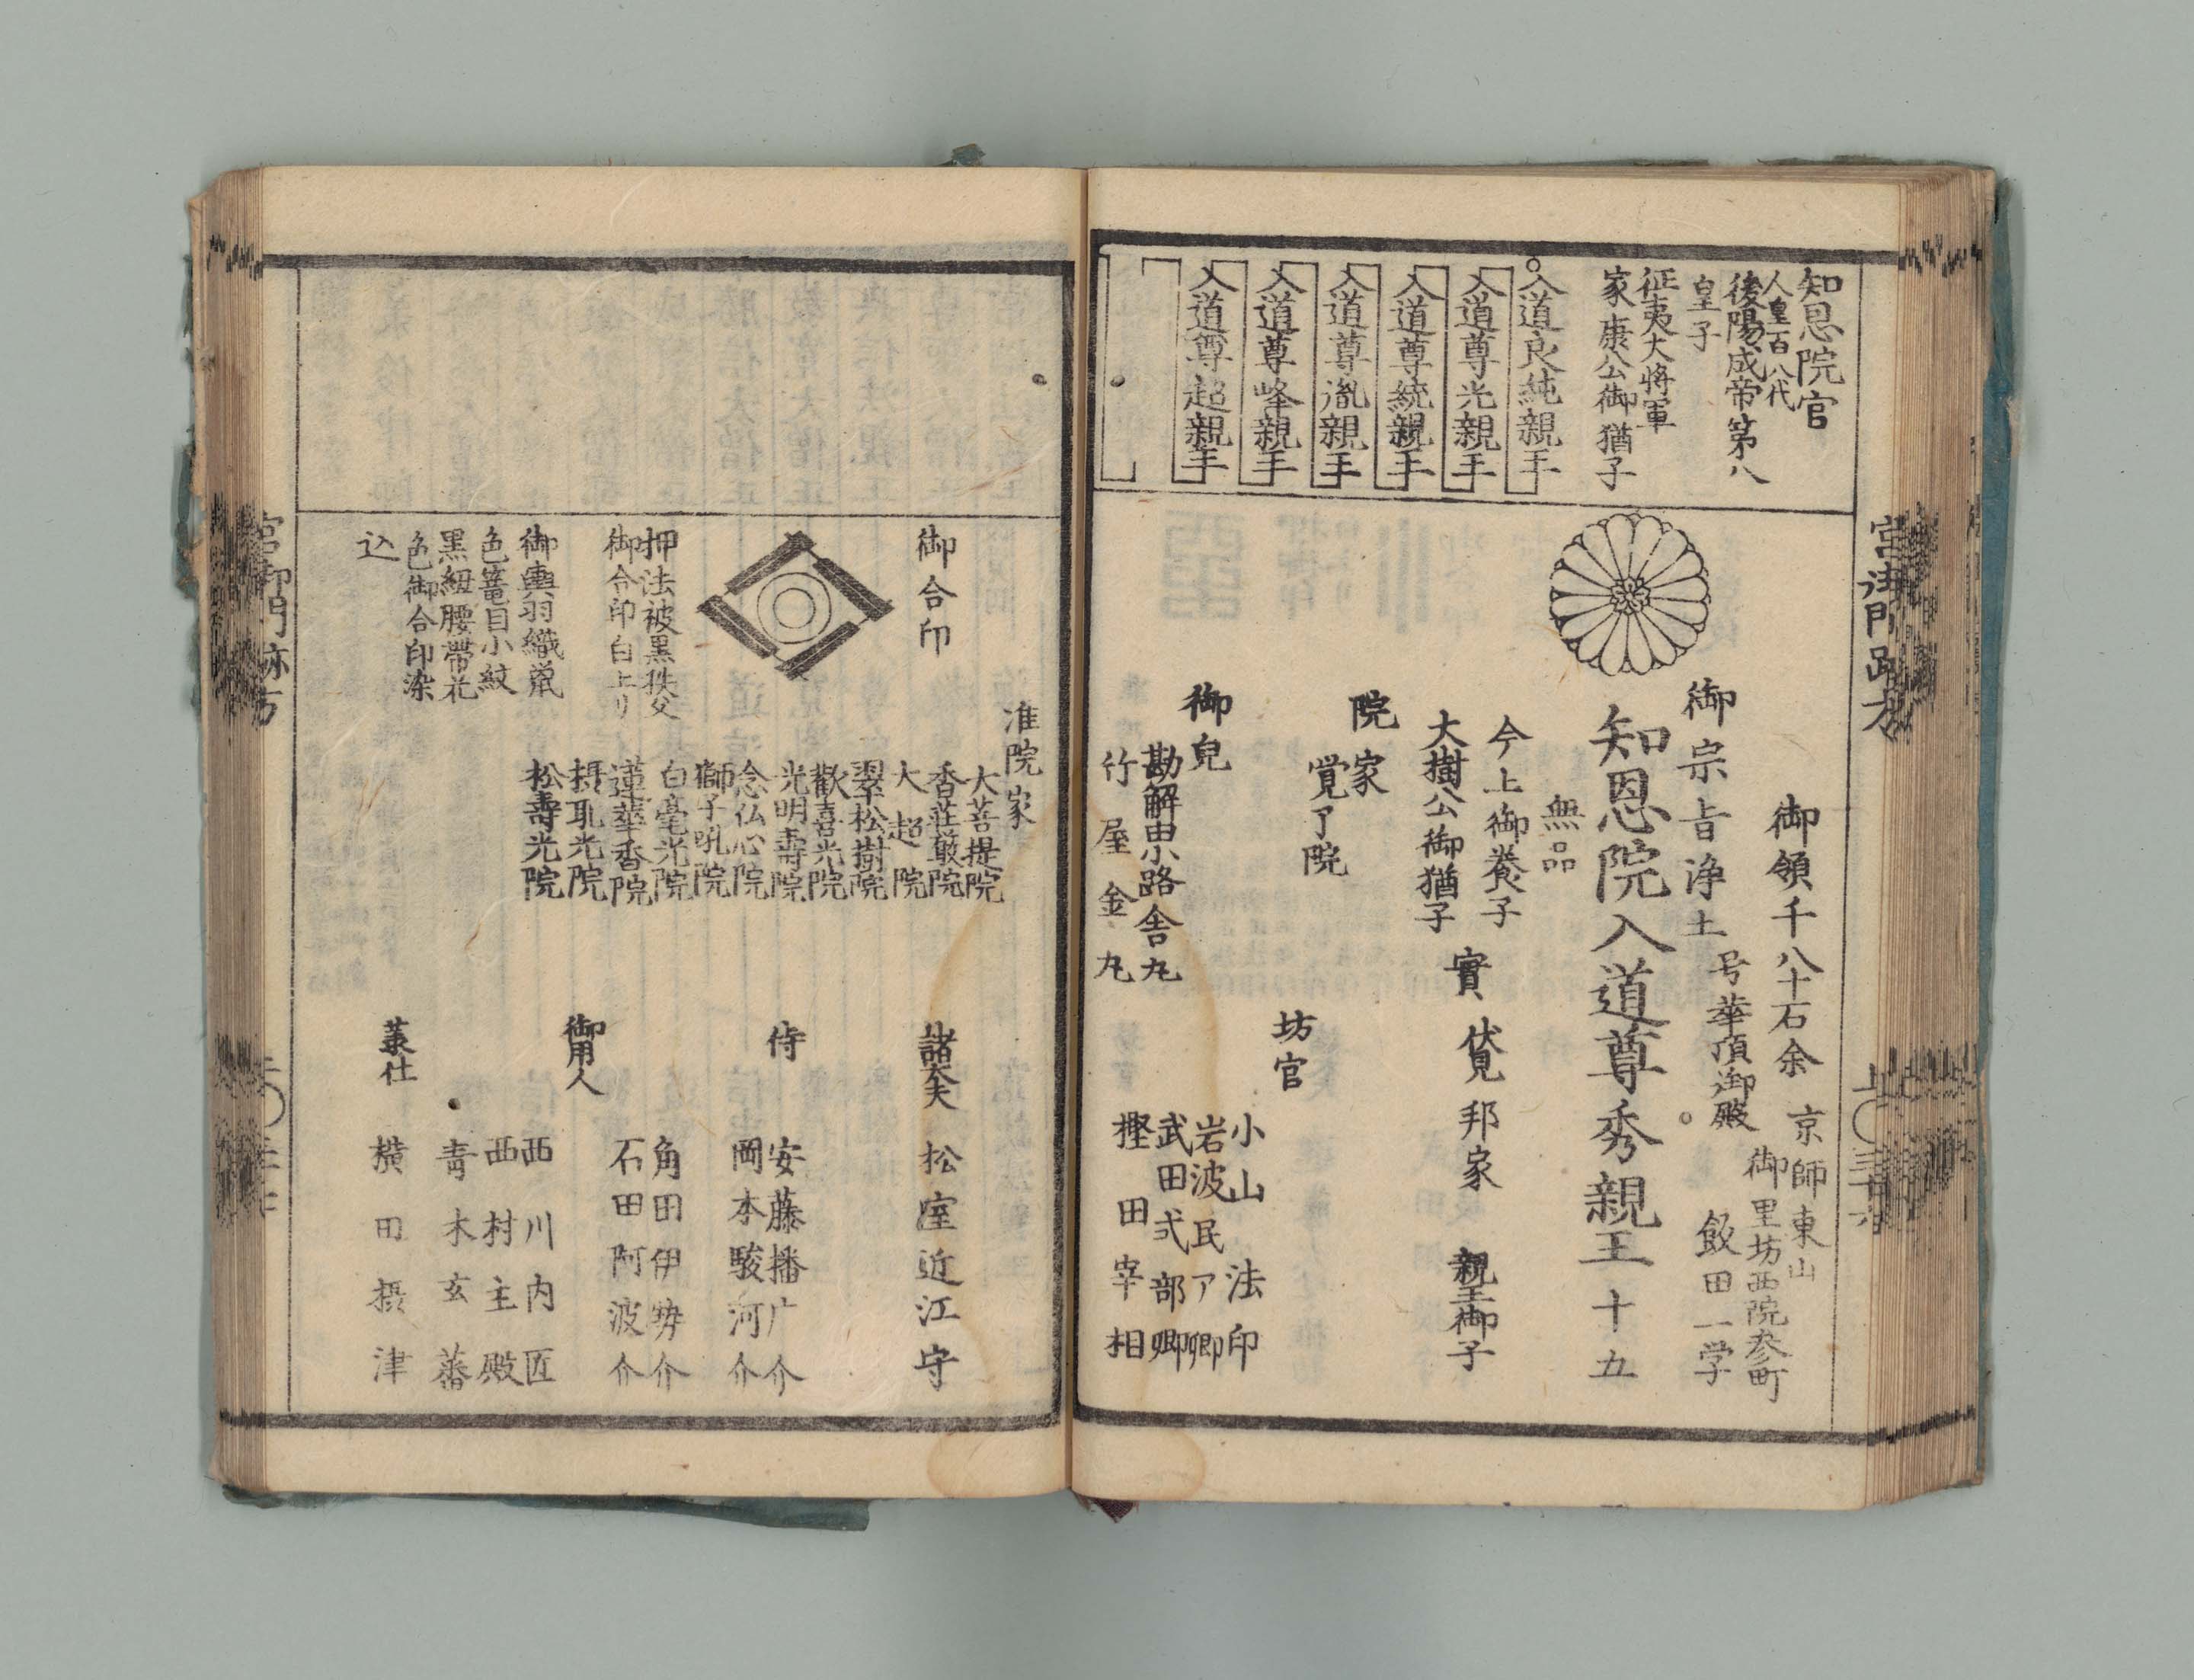 知恩院宮
人皇百八代
後陽成帝第八
皇子
征夷大将軍
家康公御猶子
入道良純親王
入道尊光親王
入道尊統親王
入道尊胤親王
入道尊峰親王
入道尊超親王
御領千八十石余
京師東山
御里坊西院参町
飯田一学
御宗旨浄土
号華頂御殿
知恩院入道尊秀親王十五
無品
今上御養子
大樹公御猶子
實伏見邦家親王御子
院家
覚了院
御皃
勘解由小路舎丸
竹屋金丸
坊官
小山法印
岩波民ア卿
武田弐部卿
樫田宰相
宮御門跡方
上〇三十六
御合印
押法被黒秩父
御合印白上リ
御輿羽織鳶
色篭目小紋
黒紐腰帯花
色御合印染
込
准院家
大菩提院
香荘厳院
大超院
翠松樹院
歓喜光院
光明壽院
念仏心院
獅子吼院
白毫光院
蓮華香院
摂取光院
松壽光院
諸大夫
松室近江守
侍
安藤播广介
岡本駿河介
御用人
角田伊勢介
石田阿波介
西川内匠
西村主殿
青木玄蕃
並仕
横田摂津
宮御門跡方